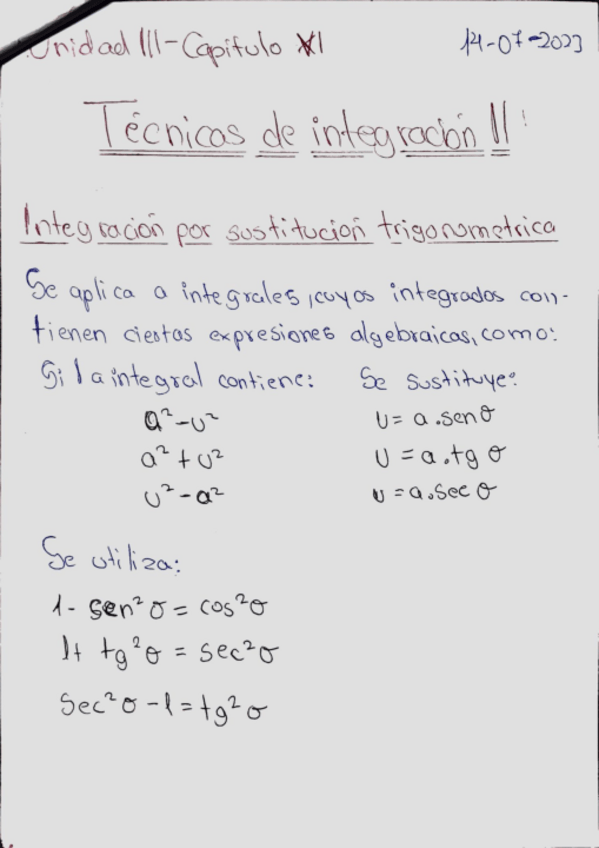 Unidad III-Capitulo XI 14-07-2023
Técnicas de integración II
Integración por sustitución trigonometrica
Se aplica a integrales, cuyos integrados con-
tienen ciertas expresiones algebraicas, como:
Si la integral contiene: Se sustituye:
a²-u² u= a.senθ
a²+u² u=a.tg θ
u²-a² u=a.sec θ
Se utiliza:
1- sen²θ = cos²θ
1+ tg²θ = sec²θ
Sec²θ -1=tg²θ